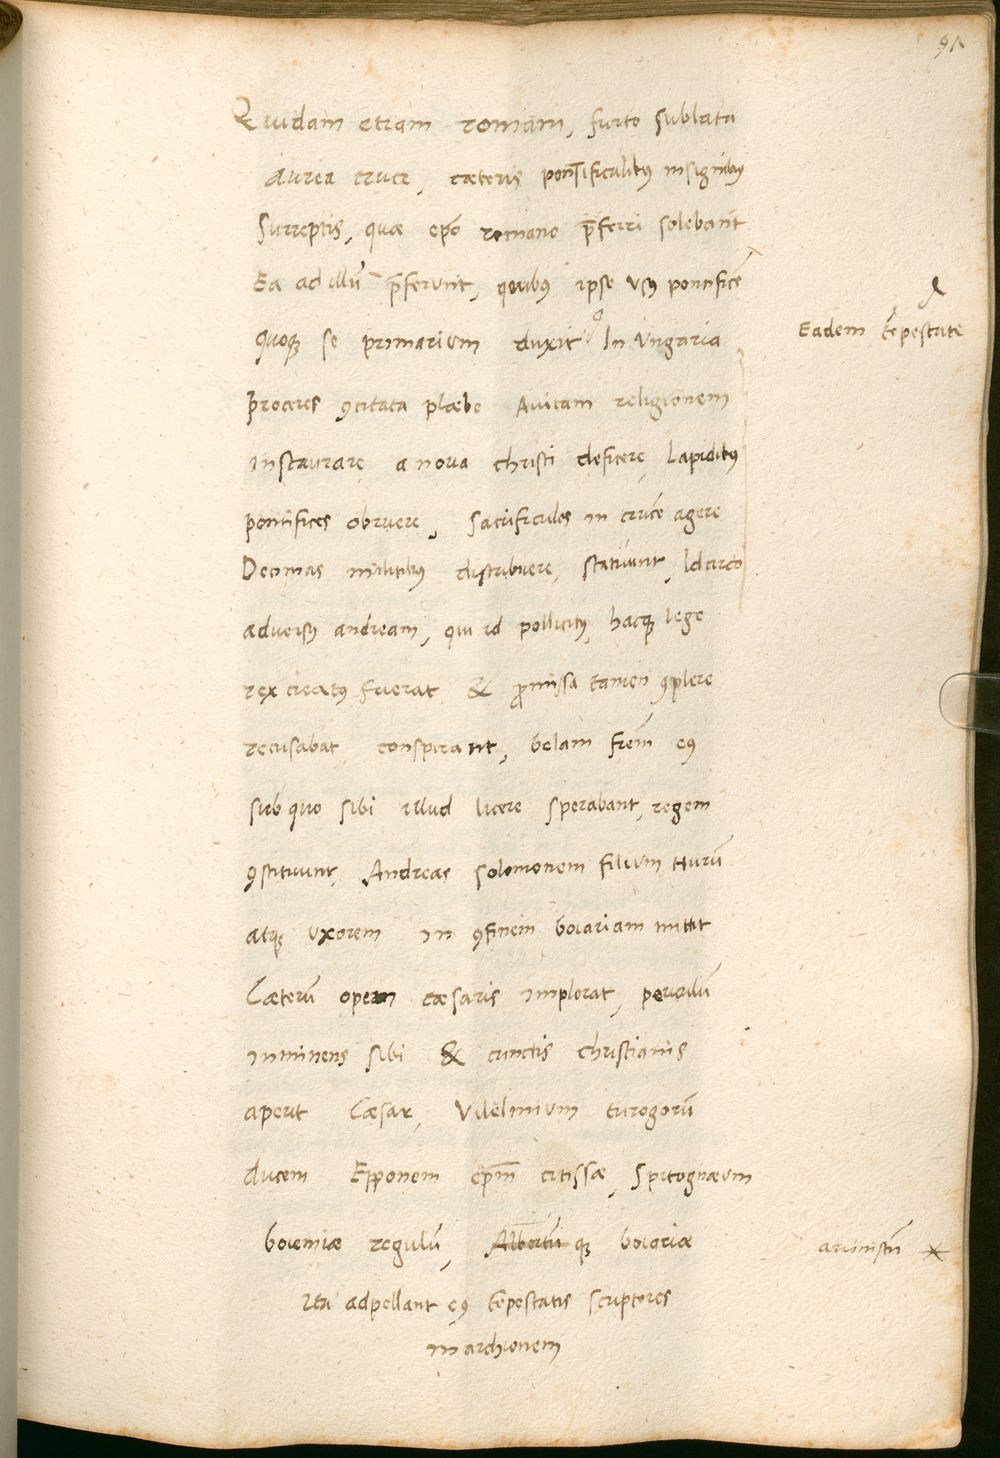 91
Quidam etiam romani, furto sublata
aurea cruce, cæteris pontificalibꝰ insignibꝰ
surreptis, quæ ep̄o romano p̄ferri solebant
Ea ad illū p̄ferunt, quibꝰ ipse usꝰ pontificē
quoqꝫ se primarium duxit In Ungaria
Eadem tēpestate
proceres ꝯcitata plæbe Auitam religionem
instaurare a noua christi deficere, lapidibꝰ
pontifices obruere, sacrificulos in crucē agere
Decimas militibꝰ distribuere, statuunt, Idcirco
aduersꝰ andream, qui id pollicitꝰ, hacqꝫ lege
rex creatꝰ fuerat & ꝓmissa tamen ꝯplere
recusabat conspirant, belam frēm eꝰ
sub quo sibi illud licere sperabant, regem
ꝯstituunt, Andreas solomonem filium
atqꝫ uxorem in ꝯfinem boiariam mittit
Cæterū opem cæsaris implorat, periculū
inminens sibi & cunctis christianis
aperit Cæsar, Vilelmum turogorū
ducem Epponem ep̄m citissæ, Spitognæum
boiemiæ regulū, Albertū qꝫ boiariæ
ariouistū
ita adpellant eꝰ tēpestatis scriptores
marchionem